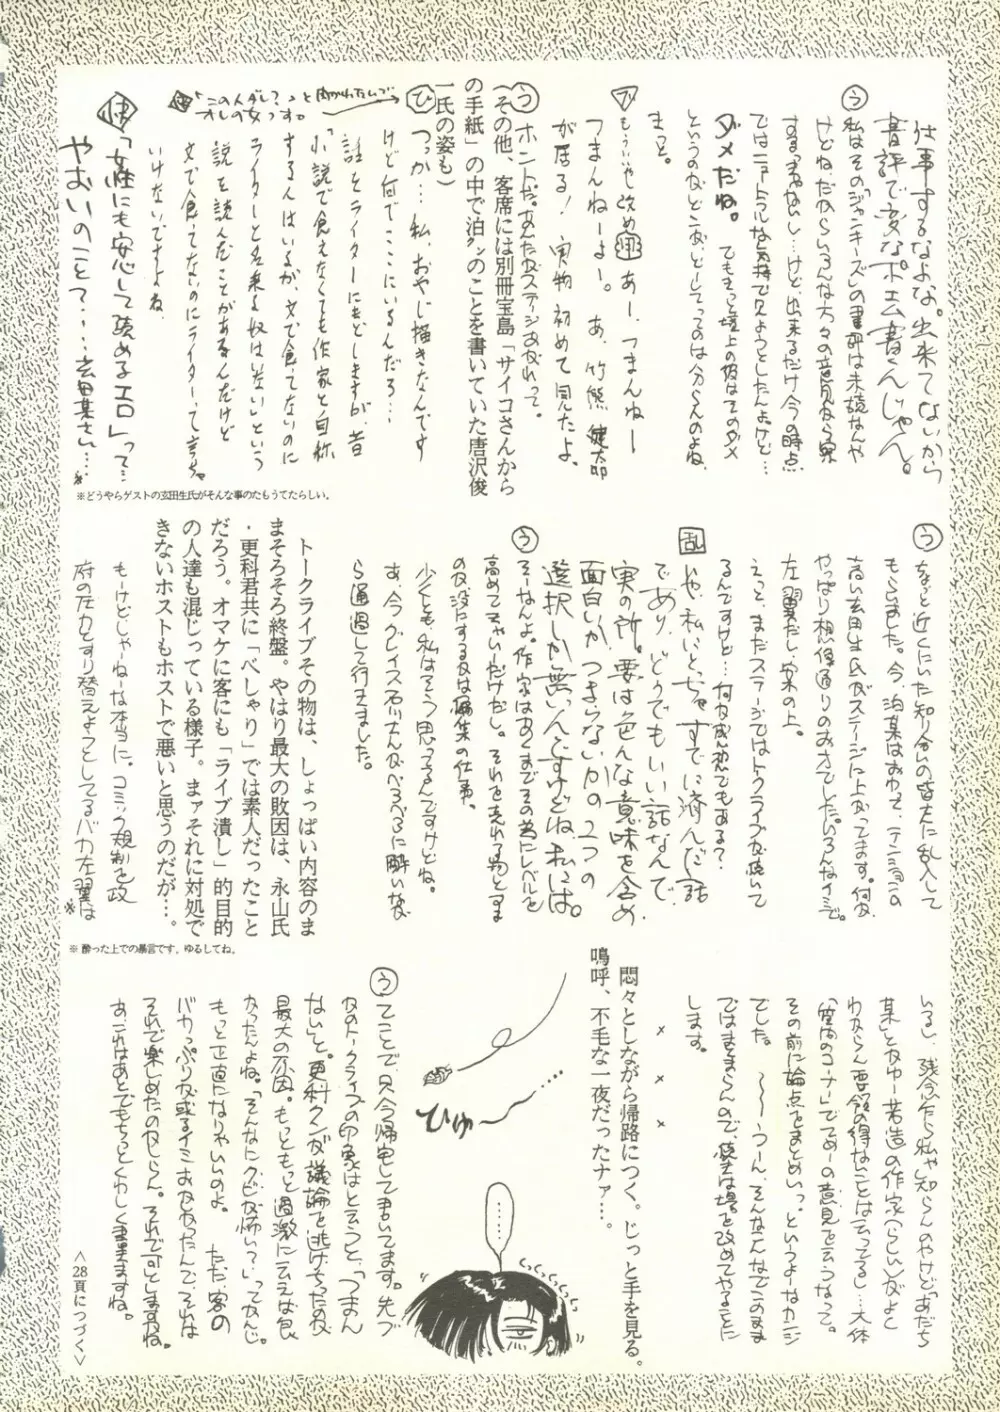 仕事するなよな。出来てないから
書評で変なポエム書くんじゃん。
う
私はその「ジャンキーズ」の書評は未読なんや
けどね。だからいろんな方々の意見なら案
するまねないし…けど、出来るだけ今の時点
ではニュートラルな気持で見ようとしたんよけど…
ダメだね。
でもきっと壇上の彼はそのダメ
というのがどこが、どーしてってのは分からんのよね
きっと。
ひ
も、ういいや改め 田 あー、つまんねー
つまんねーよ。 あ、竹熊 健太郎
が居る! 実物 初めて見たよ。
う
ホントだ。あんたがステージあがれって。
(その他、客席には別冊宝島「サイコさんから
の手紙」の中で泊クンのことを書いていた唐沢俊
一氏の姿も)
ひ
つっか…私、おやじ描きなんです
けど何でここにいるんだろ…
話をライターにもどしますが、昔
「小説で食えなくても作家と自称
する人はいるが、文で食ってないのに
ライターと名乗る奴はいない」という
説を読んだことがあるんだけど
文で食ってないのにライターって言っちゃ
いけないですよね
「この人ダレ?」と聞かれたいで
オレの女っす。
「女性にも安心して読めるエロ」って…
やおいのこと?‥‥玄田某さい…※
※どうやらゲストの玄田生氏がそんな事のたもうてたらしい。
う
ちょっと近くにいた知り合いの皆さんに乱入して
もらいました。今、泊某はおわって、テンションの
高い玄田生氏がステージに上がってます。何か
やっぱり想像通りのお方でした。いろんなイミで。
左翼だし、案の上。
えっと、まだステージではトークライブが続いて
るんですけど…何か感想でもある?
乱
いや、私いとっちゃすでに済んだ話
であり、どうでもいい話なんで、
実の所。要は色んな意味を含め
面白いか、つまらないかの2つの
選択しか無いんですけどね私には。
う
そーなんよ。作家はあくまでその為にレベルを
高めてきゃいーだけだし。それを売れる物とする
か没にするかは編集の仕事、
少くとも私はそう思ってるんですけどね。
あ、今グレイス石川さんがべろべろに酔いなが
ら通過して行きました。
トークライブその物は、しょっぱい内容のま
まそろそろ終盤。やはり最大の敗因は、永山氏
・更科君共に「べしゃり」では素人だったこと
だろう。オマケに客にも「ライブ潰し」的目的
の人達も混じっている様子。まァそれに対処で
きないホストもホストで悪いと思うのだが…。
もーけどじゃねーな本当に。コミック規制を政
府の圧力とすり替えよーとしてるバカ左翼は※
※酔った上での暴言です。ゆるしてね。
いるし、残念乍ら私ゃ知らんのやけど「あだち
某」とかゆー若造の作家(らしい)がよと
わからん要領の得ないことは云ってるし…大体
「笠内のコーナー」でてめーの意見を云うなって。
その前に論点をまとめいっ。というよーなカンジ
でした。 〜〜〜うーん、そんなこんなでこのまま
ではまとまらんので、続きは場を改めてやることに
します。
× × ×
悶々としながら帰路につく。じっと手を見る。
嗚呼、不毛な一夜だったナァ…。
ひゅー
‥‥
………
う
てことで只今帰宅して書いてます。先ブ
なのトークライブの印象はと云うと、「つまん
ない」と。更科クンが議論を逃げちったのが
最大の不因。もっともっと過激に云えば良
かったんよね。「そんなにクビが怖い?」ってかんじ。
もっと正直になりゃいいのよ。 ただ、客の
バカっぷりが或るイミおかしかったんで、それは
それで楽しめたのかしらん。それで可としますね。
あ、これはあとでもちっとくわしく書きますね。
<28頁につづく>